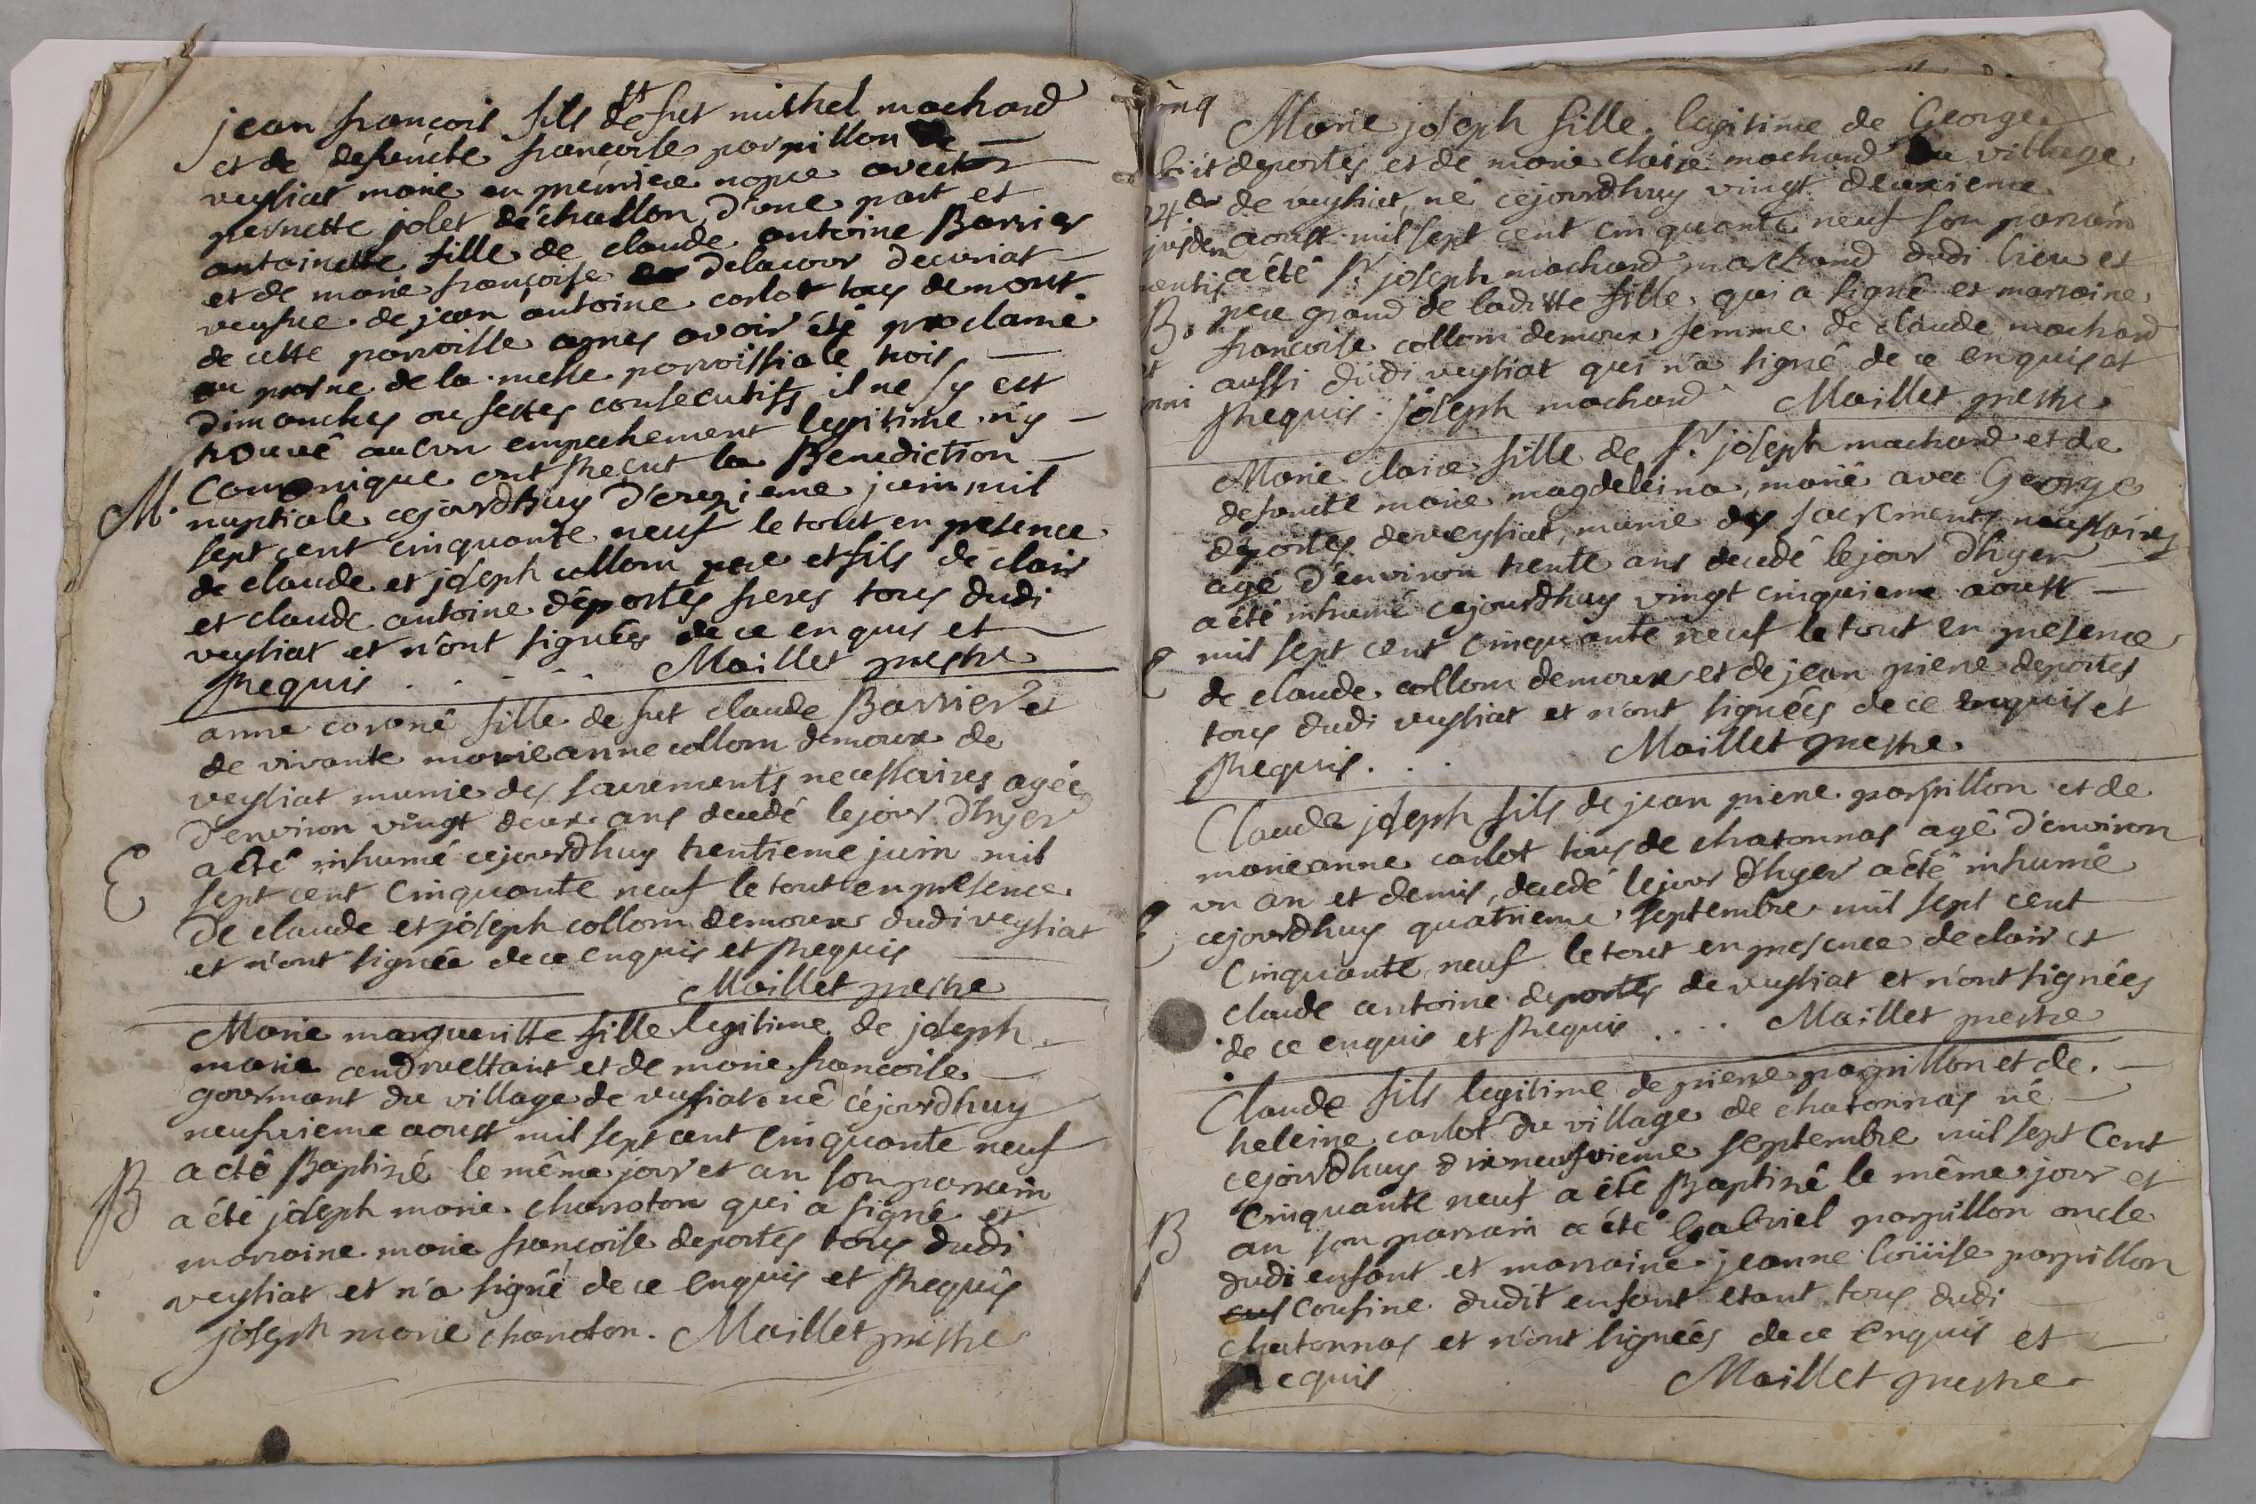 jean francois fils de fut michel machard
et de defuncte francoise parpillon de
veyssiat marie en premiere nopce avec
pernette jolet de challon, d'une part et
antoinette fille de claude antoine Barrier
et de marie francoise delacour decuriat
veufve de jean antoine carlot tous demont
de cette parroisse apres avoir été proclamé
au prosne de la messe parroissiale trois
dimanches ou festes consecutifs il ne sy est
trouvé aucun empechement legitime n'y
M. Canonique ont Rhecut la Benediction
nuptiale cejourdhuy d'euxieme juin mil
sept cent cinquante neuf le tout en presence
de claude et joseph collom pere et fils de clair
et claude antoine déportes freres tous dudi
veyssiat et n'ont signées de ce enquis et
Rhequis . . . . . Maillet prestre
anne corone fille de fut claude Barrier et
de vivante marieanne collom demoux de
veyssiat munie des sacrements necessaires agée
d'environ vingt deux ans decedé lejour d'hyer
E a été inhumé cejourdhuy trentieme juin mil
sept cent cinquante neuf le tout en presence
de claude et joseph collom demoux dudi veyssiat
et n'ont signée de ce enquis et Rhequis
Maillet prestre
Marie margueritte fille legitime de joseph
marie cendrvettant et de marie francoise
gourmant du village de veyssiat né cejourdhuy
neufvieme aoust mil sept cent cinquante neuf
B a été Baptizé le même jour et an son parrain
a été joseph marie charroton qui a signé et
marraine marie francoise deportes tous dudi
veyssiat et n'a signé de ce enquis et Rhequis
joseph marie charroton. Maillet prestre
Marie joseph fille legitime de George
deportes et de marie claire machard du village
de veyssiat, né cejourdhuy vingt deuxieme
aoust mil sept cent cinquante neuf son parrain
a été Sr joseph machard marchand dudi lieu et
B. pere grand de laditte fille qui a signé et marraine
francoise collom demoux femme de claude machard
aussi dudi veyssiat qui n'a signé de ce enquis et
Rhequis. joseph machard Maillet prestre
Marie claire fille de Sr joseph machard et de
defuncte marie magdeleina, marié avec George
deportes de veyssiat, munie des sacrements necessaires
agé d'environ trente ans decedé lejour d'hyer
a été inhumé cejourdhuy vingt cinquieme aoust
E mil sept cent cinquante neuf le tout en presence
de claude collom demoux et de jean pierre deportes
tous dudi veyssiat et n'ont signées de ce enquis et
Rhequis. . . Maillet prestre
Claude joseph fils de jean pierre parpillon et de
marieanne carlot tous de chatonnas agé d'environ
un an et demis, decedé lejour d'hyer a été inhumé
E cejourdhuy quatrieme septembre mil sept cent
Cinquante neuf le tout en presence de clair et
claude antoine deportes de veyssiat et n'ont signées
de ce enquis et Rhequis . . . . Maillet prestre
Claude fils legitime de pierre parpillon et de
heleine carlot du village de chatonnas né
cejourdhuy dixneufvieme septembre mil sept Cent
Cinquante neuf a été Baptizé le même jour et
B an son parrain a été Gabriel parpillon oncle
dudi enfant et marraine jeanne loüise parpillon
Cousine dudit enfant etant tous dudi
chatonnas et n'ont signées de ce enquis et
Requis Maillet prestre